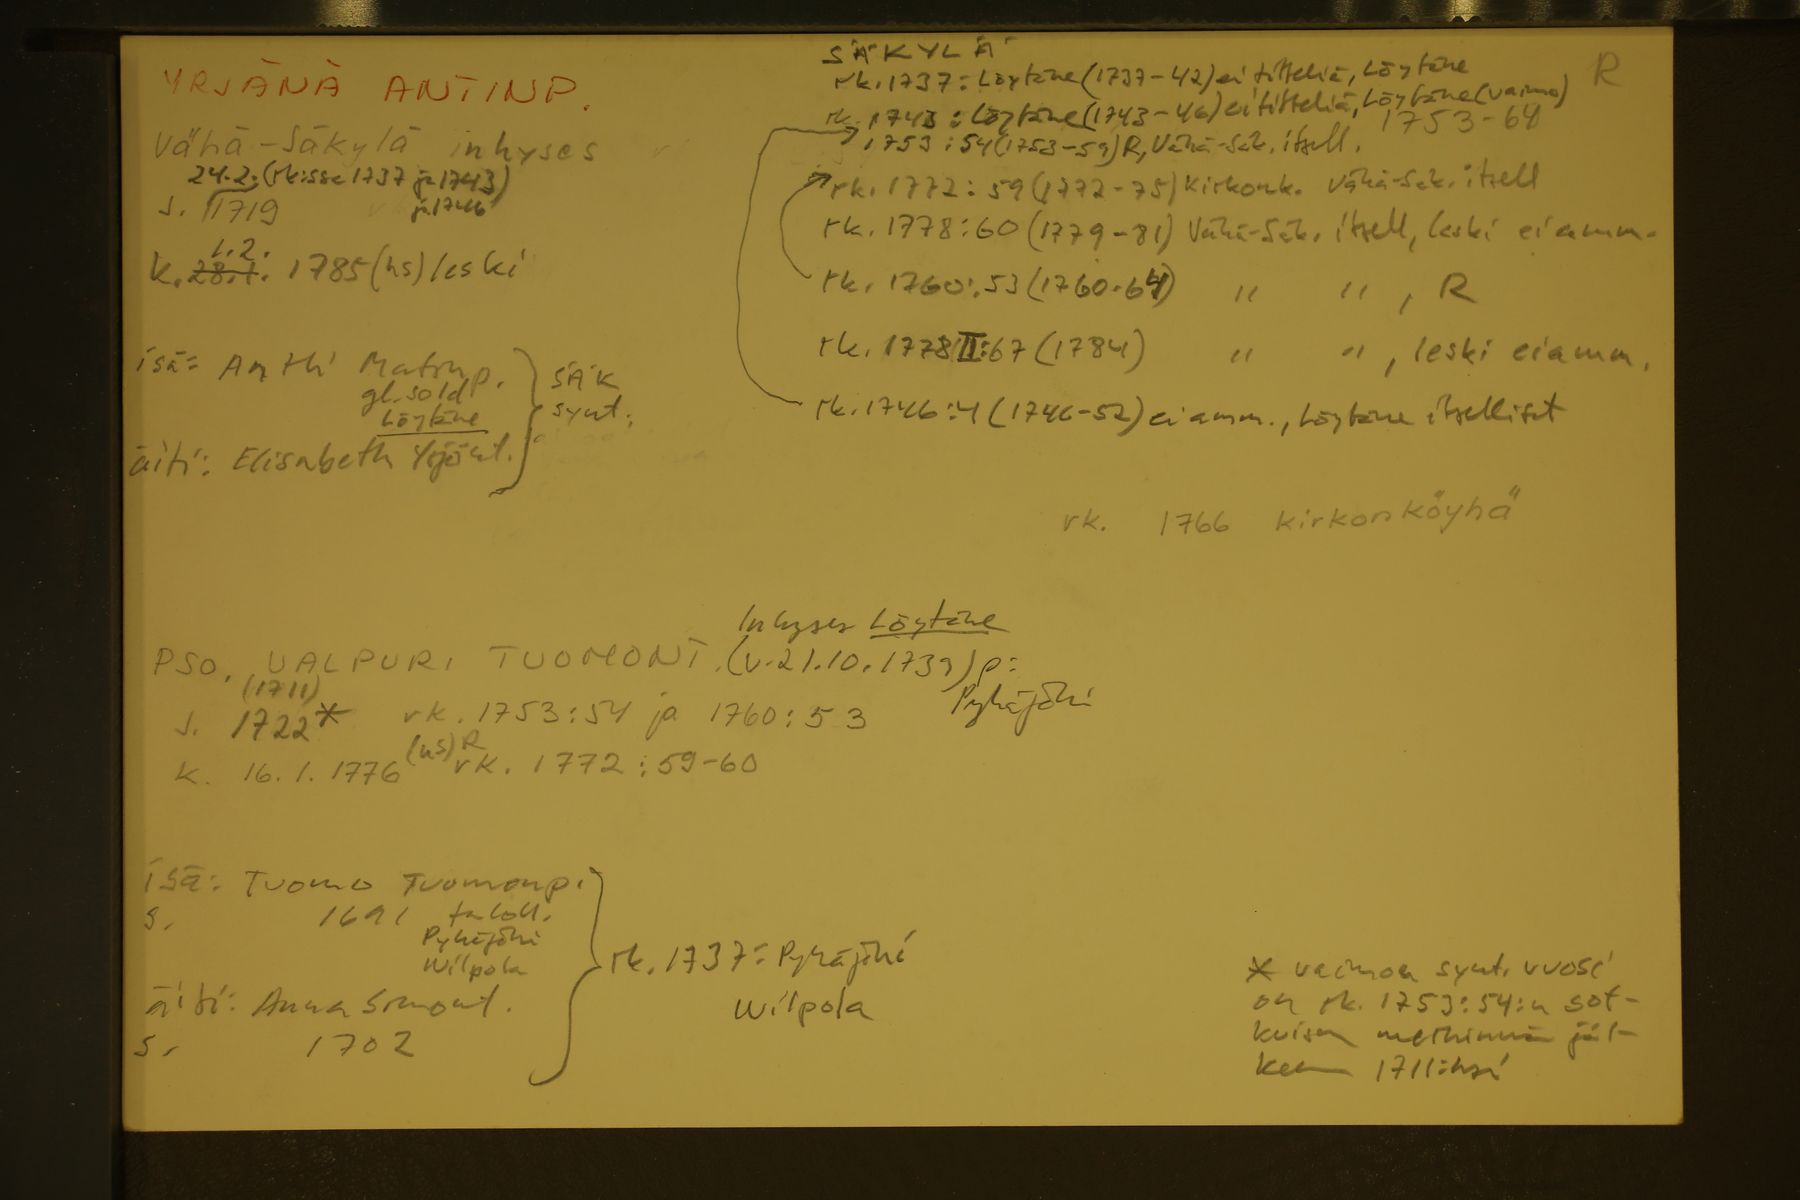 YRJÄNÄ ANTINP.
Vähä-Säkylä inhyses
24.2. (rk:ssa 1737 ja 1743)
ja 1746
s. 1719
1.2.
k. 28.1. 1785 (hs) leski
isä: Antti Matinp.
gl. sold
Löytäne
äiti: Elisabeth Yrjönt.
SÄK
synt.
SÄKYLÄ
R
rk. 1737: Löytäne (1737-42) ei titteliä, Löytäne
rk. 1743: Löytäne (1743-46) ei titteliä, Löytäne (vaimo)
1753-64
1753:54 (1753-59) R, Vähä-Säk. itsell.
rk. 1772: 59 (1772-75) kirkonk. Vähä-Säk. itsell
rk. 1778:60 (1779-81) Vähä-Säk. itsell, leski ei amm.
rk. 1760:53 (1760-64) " " , R
rk. 1778 II:67 (1784) " " , leski ei amm.
rk. 1746:4 (1746-52) ei amm., Löytäne itselliset
rk. 1766 kirkonköyhä
Inhyses Löytäne
PSO. VALPURI TUOMONT. (v. 21.10.1739) p:
Pyhäjoki
(1711)
s. 1722* rk. 1753:54 ja 1760:53
k. 16.1.1776 (hs) R rk. 1772:59-60
isä: Tuomo Tuomonp.
s. 1691 taloll.
Pyhäjoki
Wilpola
äiti: Anna Simont.
s. 1702
rk. 1737: Pyhäjoki
Wilpola
* vaimon synt. vuosi
on rk. 1753:54:n sot-
kuisen merkinnän jäl-
keen 1711:ksi